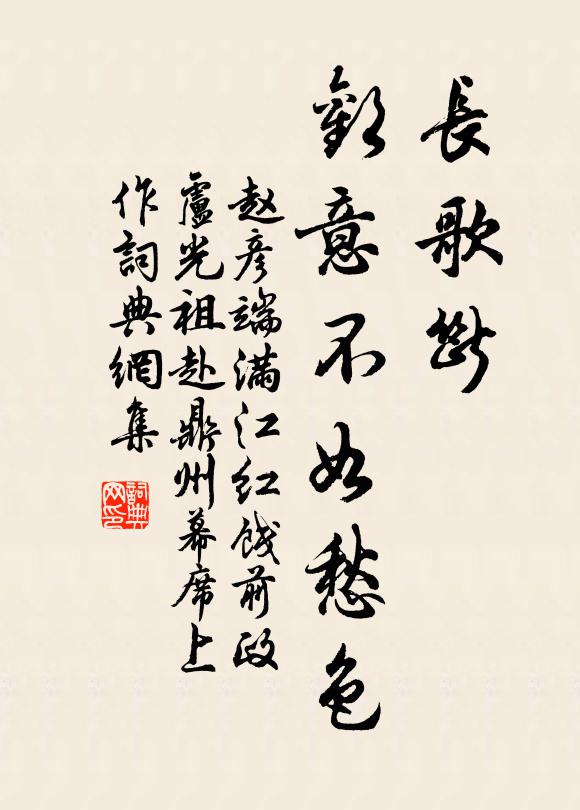 長歌断
歡意不如愁色
赵彦端滿江红餞前政
盧光祖赴鼎州幕席上
作詞典網集
詞典
网印